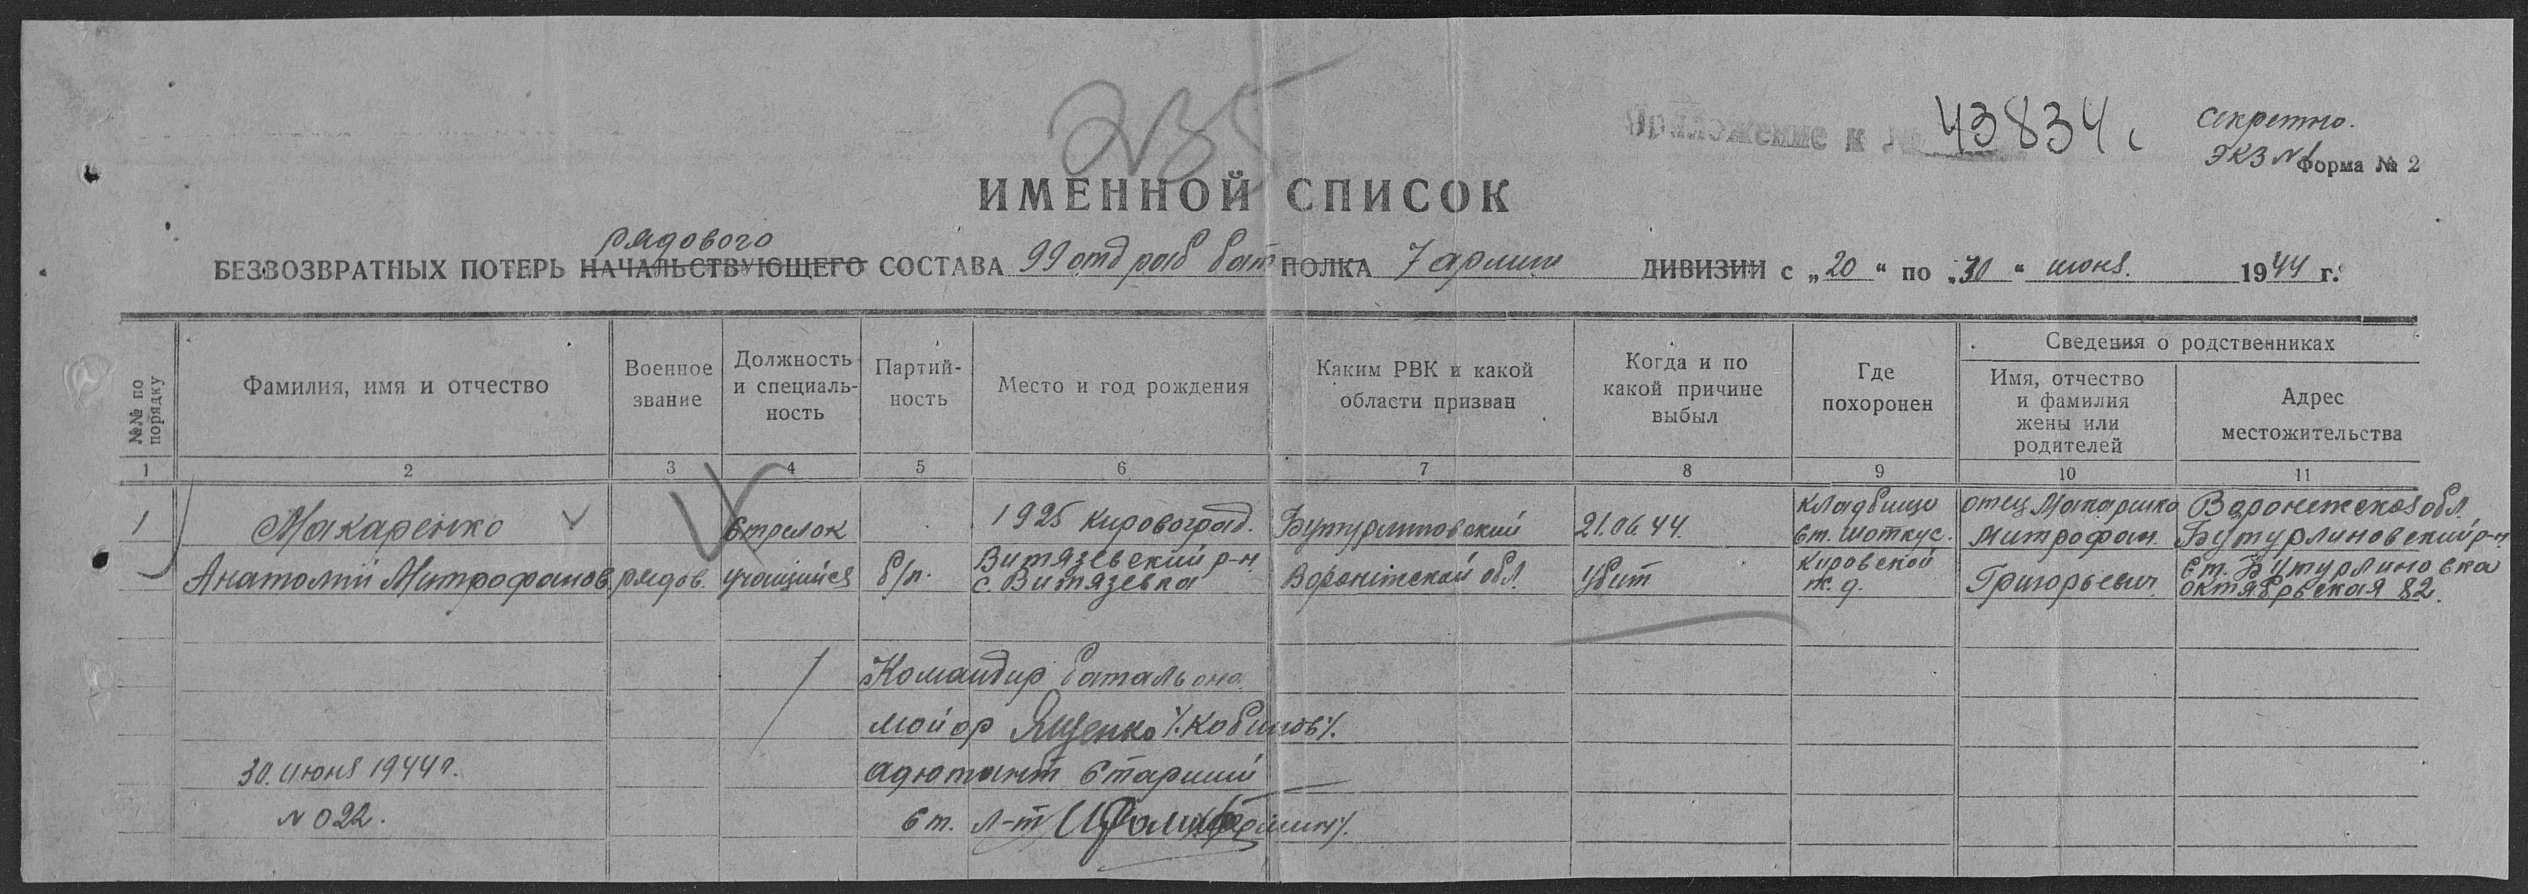 235
Приложение к №
43834с
Секретно.
Экз №1
Форма № 2
ИМЕННОЙ СПИСОК
рядового
БЕЗВОЗВРАТНЫХ ПОТЕРЬ НАЧАЛЬСТВУЮЩЕГО СОСТАВА 99 отд раб бат ПОЛКА 7 армии ДИВИЗИИ с „20“ по „30“ июня. 1944 г.
№№ по порядку
Фамилия, имя и отчество
Военное
звание
Должность
и специаль-
ность
Партий-
ность
Место и год рождения
Каким РВК и какой
области призван
Когда и по
какой причине
выбыл
Где
похоронен
Сведения о родственниках
Имя, отчество
и фамилия
жены или
родителей
Адрес
местожительства
1 2 3 4 5 6 7 8 9 10 11
1
Макаренко
Анатолий Митрофанов
рядов.
Стрелок
учащийся
б/п.
1925 Кировоград.
Витязевский р-н
с. Витязевка
Бутурлиновский
Воронежской обл.
21.06.44.
Убит
кладбище
ст. Шоткус.
Кировской
ж.д.
отец Макаренко
Митрофан
Григорьевич
Воронежская обл.
Бутурлиновский р-н
ст. Бутурлиновка
Октябрьская 82.
Командир батальона
майор Ященко
Адютант Старший
ст. л-т
30. июня 1944 г.
№ 022.